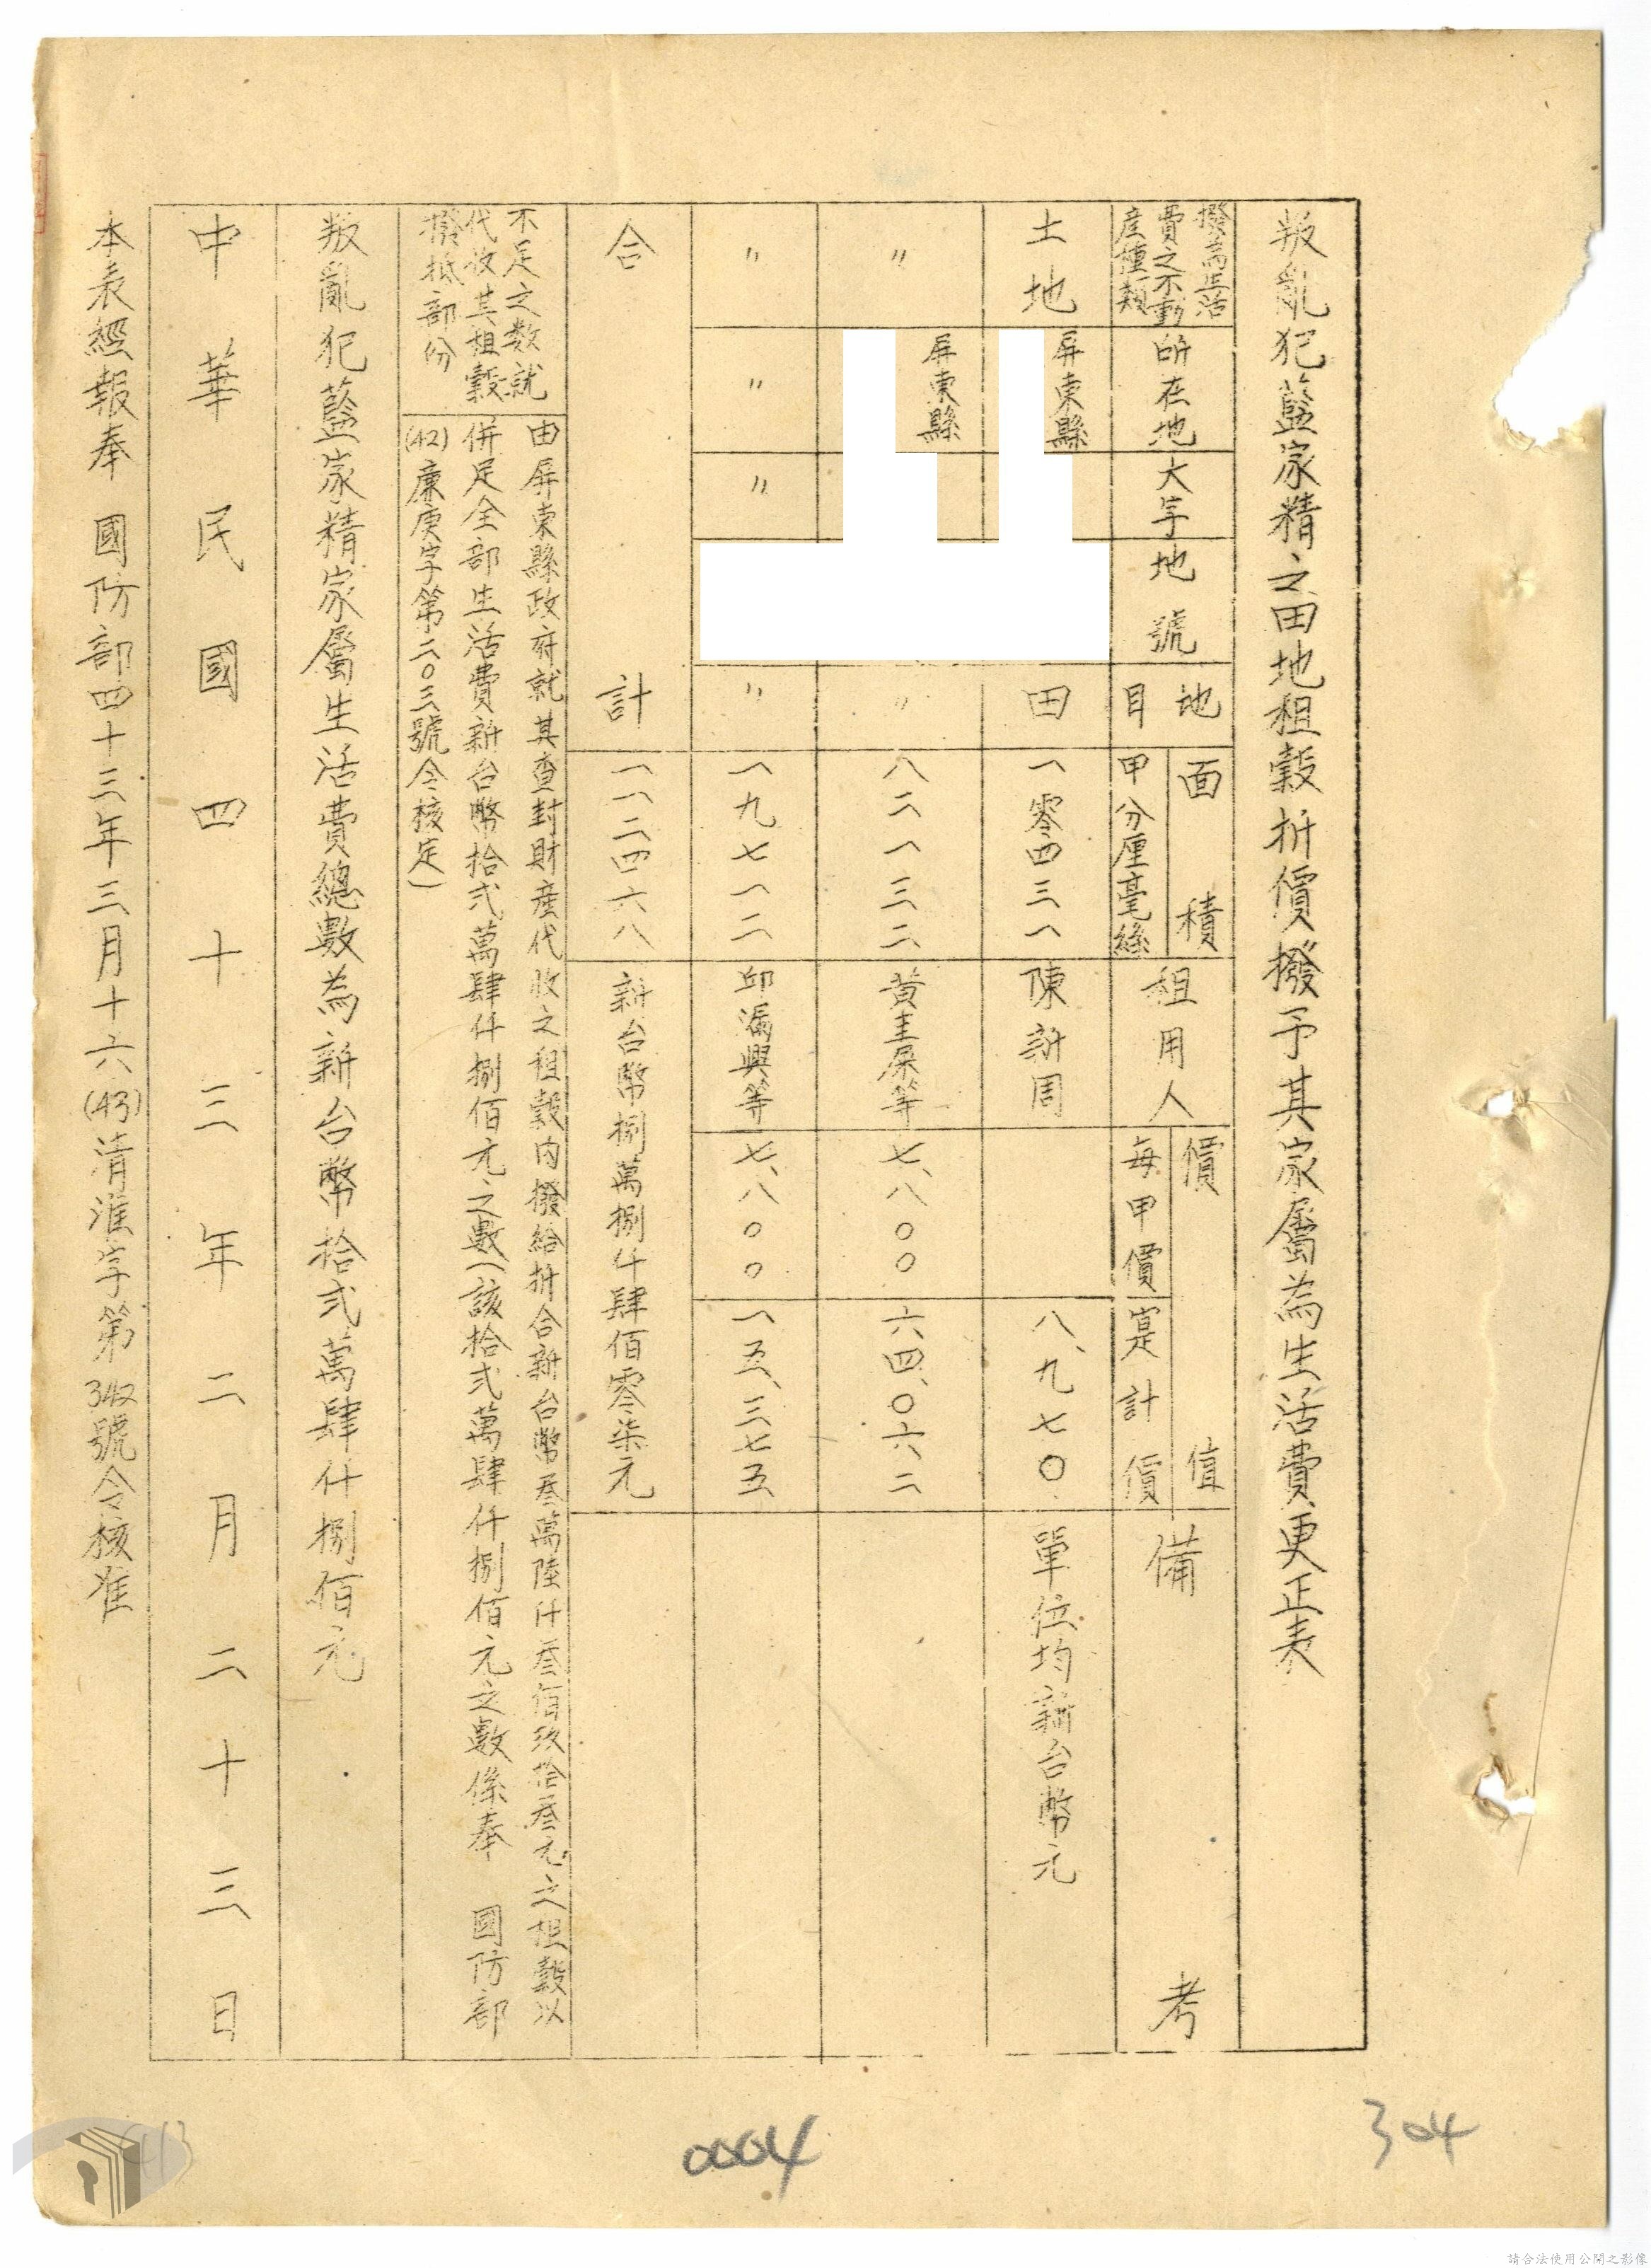 叛亂犯藍家精之田地租穀折價撥予其家屬為生活費更正表
撥為生活費之不動產種類
所在地
大字
地號
地目
面積
甲分厘毫絲
租用人
價值
每甲價
寔計價
備考
土地
屏東縣
田
一零四三一
陳新周
八、九七〇
單位均新台幣元
〃
屏東縣
〃
八二一三二
黃圭屎等
七、八〇〇
六四、〇六二
〃
〃
〃
〃
一九七一二
邱滿興等
七、八〇〇
一五、三七五
合計
一一二四六八
新台幣捌萬捌仟肆佰零柒元
不足之数就
代收其租穀
撥抵部份
由屏東縣政府就其查封財產代收之租穀內撥給折合新台幣叁萬陸仟叁佰玖拾叁元之租穀以
併足全部生活費新台幣拾弍萬肆仟捌佰元之數(該拾弍萬肆仟捌佰元之數係奉 國防部
(42)廉庚字第二〇三號令核定)
叛亂犯藍家精家屬生活費總數為新台幣拾弍萬肆仟捌佰元
中華民國四十三年二月二十三日
本表經報奉 國防部四十三年三月十六(43)清淮字第342號令核准
0004
304
請合法使用公開之影像